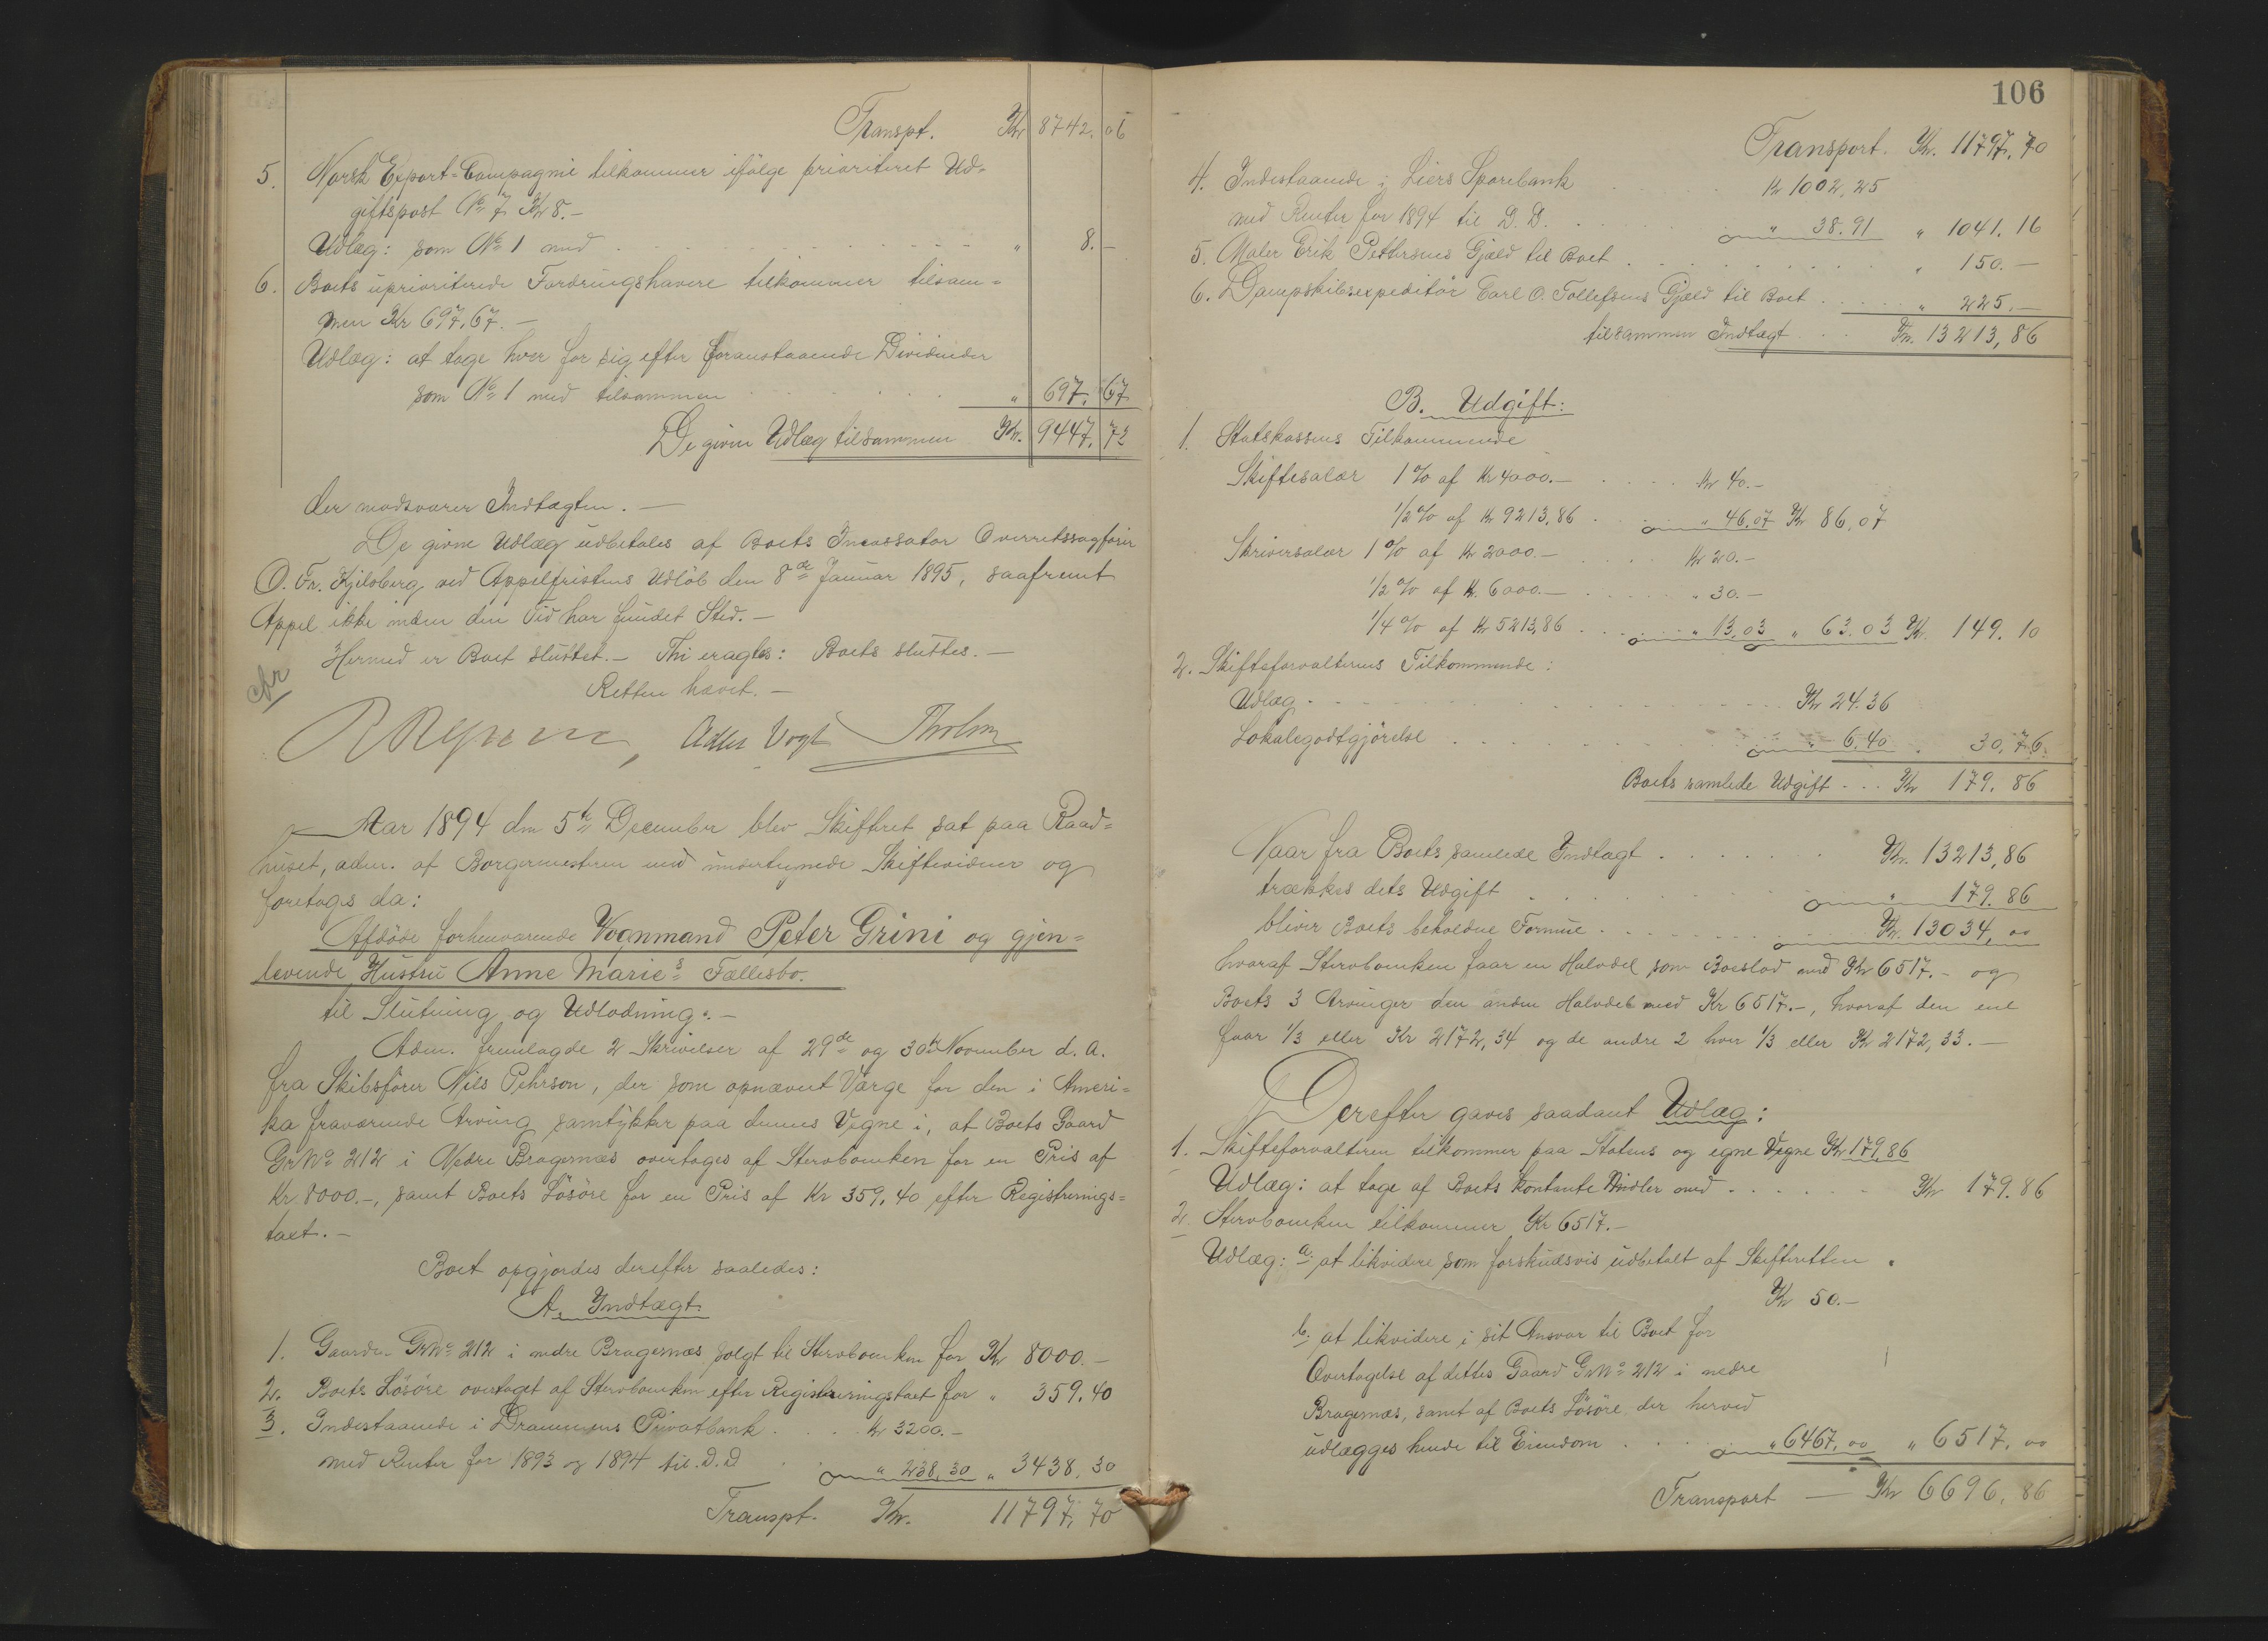 Transpt. Kr 8742. 06
5. Norsk Export=Compagnie tilkommer ifølge prioriteret Ud=
giftspost No 7 Kr 8.-
Udlæg: som No 1 med " 8.-
6. Boets uprioriterede Fordringshavere tilkommer tilsam=
men Kr 697,67.-
Udlæg: at tage hver for sig efter foranstaaende Dividender
som No 1 med tilsammen " 697. 67
De givne Udlæg tilsammen Kr. 9447. 73
der modsvarer Indtægten.-
De givne Udlæg udbetales af Boets Incassator Overretssagfører
O. Fr. Kjilsberg ved Appelfristens Udløb den 8de Januar 1895, saafremt
Appel ikke inden den Tid har fundet Sted.-
Hermed er Boet sluttet.- Thi eragtes: Boets sluttes.-
cfr
Retten hævet.-
Adler Vogt Tholm
Aar 1894 den 5te December blev Skifteret sat paa Raad=
huset, adm. af Borgermesteren med undertegnede Skiftevidner og
foretoges da:
Afdøde forhenværende Vognmand Peter Grini og gjen=
levende Hustru Anne Marie's Fællesbo.
til Slutning og Udlodning.-
Adm. fremlagde 2 Skrivelser af 29de og 30te November d. A.
fra Skibsfører Nils Pehrson, der som opnævnt Værge for den i Ameri=
ka fraværende Arving samtykker paa dennes Vegne i, at Boets Gaard
Gr No 212 i Nedre Bragernæs overtages af Stervboenken for en Pris af
Kr 8000.-, samt Boets Løsøre for en Pris af Kr 359,40 efter Registrerings=
taxt.-
Boet opgjordes derefter saaledes:
A. Indtægt.
1. Gaarden GrNo 212 i nedre Bragernæs solgt til Stervboenken for Kr 8000.-
2. Boets Løsøre overtaget af Stervboenken efter Registreringstaxt for " 359.40
3. Indestaaende i Drammens Privatbank Kr 3200.-
med Renter for 1893 og 1894 til D.D " 238,30 " 3438,30
Transpt. Kr. 11797,70
106
Transport. Kr. 11797,70
4. Indestaaende i Liers Sparebank Kr 1002,25
med Renter for 1894 til D.D. " 38.91 " 1041.16
5. Maler Erik Pettersens Gjæld til Boet " 150.-
6. Dampskibsexpeditør Carl O. Tollefsens Gjæld til Boet " 225.-
tilsammen Indtægt Kr. 13213,86
B. Udgift:
1. Statskassens Tilkommende
Skiftesalær 1% af Kr 4000.- Kr 40.-
1/2% af Kr 9213,86 " 46,07 Kr 86,07
Skriversalær 1% af Kr 2000.- Kr 20.-
1/2% af Kr. 6000.- " 30.-
1/4% af Kr 5213,86 " 13.03 " 63.03 Kr. 149.10
2. Skifteforvalterens Tilkommende:
Udlæg Kr 24.36
Lokalegodtgjørelse " 6.40 " 30,76.
Boets samlede Udgift Kr 179.86
Naar fra Boets samlede Indtægt Kr. 13213,86
trækkes dets Udgift " 179.86
bliver Boets beholdne Formue Kr. 13034,00
hvoraf Stervboenken faar en Halvdel som Boeslod med Kr 6517.- og
Boets 3 Arvinger den anden Halvdel med Kr 6517.-, hvoraf den ene
faar 1/3 eller Kr 2172,34 og de andre 2 hver 1/3 eller Kr 2172,33.-
Derefter gaves saadant Udlæg:
1. Skifteforvalteren tilkommer paa Statens og egne Vegne Kr 179.86
Udlæg: at tage af Boets kontante Midler med Kr 179.86
2. Stervboenken tilkommer Kr 6517.-
Udlæg: a. at likvidere som forskudsvis udbetalt af Skifteretten
Kr 50.-
b. at likvidere i sit Ansvar til Boet for
Overtagelse af dettes Gaard GrNo 212 i nedre
Bragernæs, samt af Boets Løsøre der herved
udlægges hende til Eiendom " 6467,00 " 6517,00
Transport - Kr 6696,86